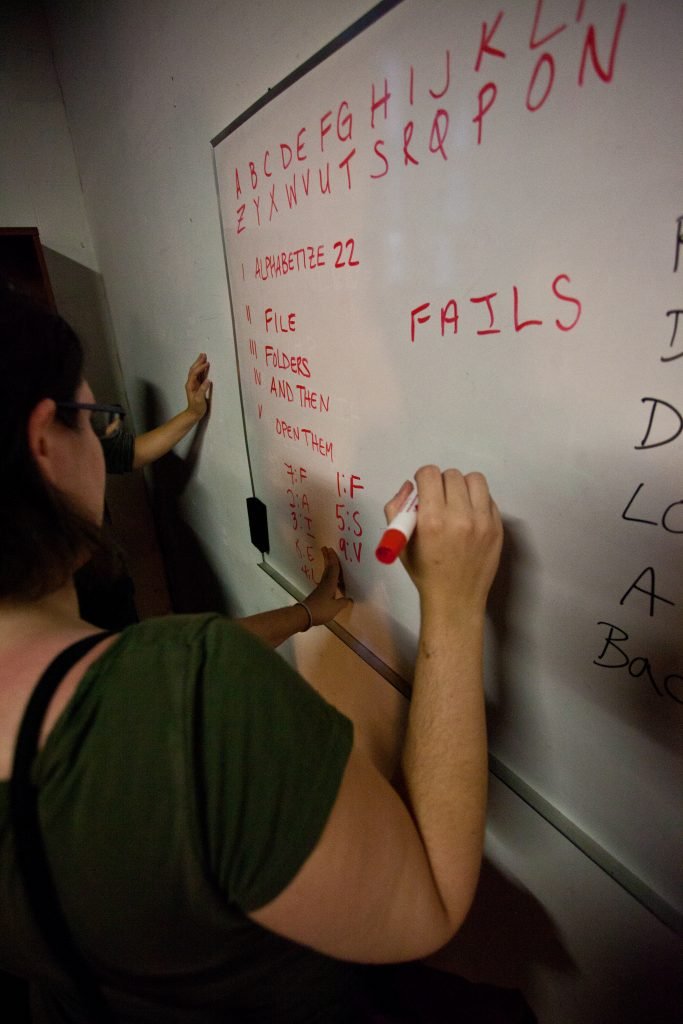 A B C D E F G H I J K L
Z Y X W V U T S R Q P O N
I ALPHABETIZE 22
II FILE
III FOLDERS
IV AND THEN
V OPEN THEM
FAILS
7:F 1:F
2:A 5:S
3:I 9:V
D
LO
A
Bac